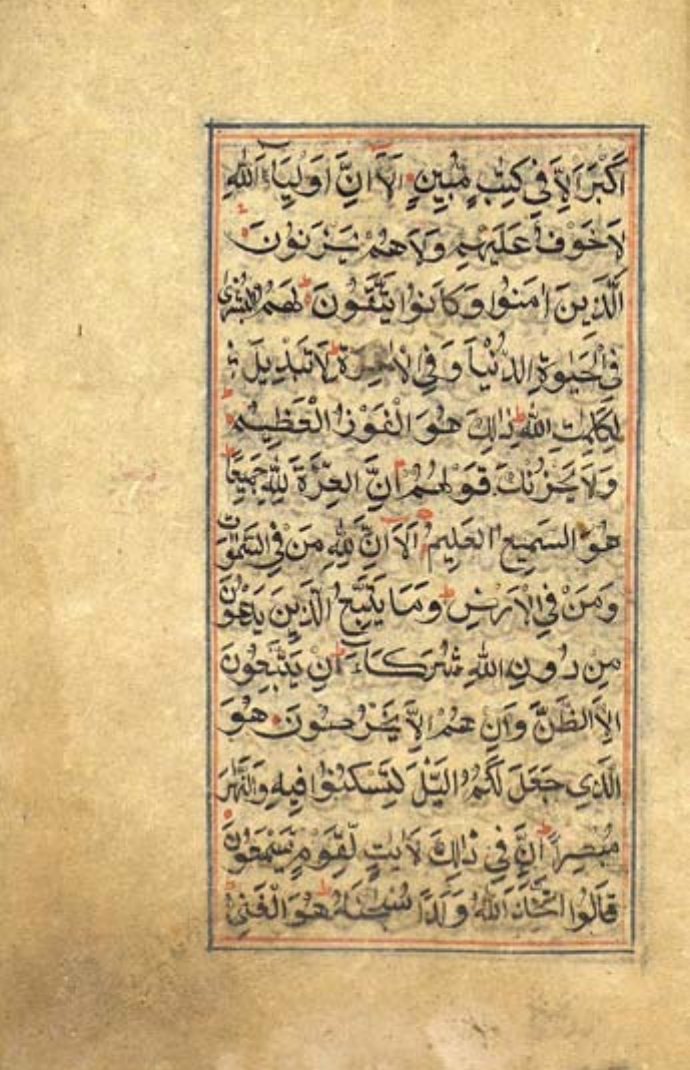 اَكْبَرَ اِلَّا فِى كِتٰبٍ مُّبِيْنٍ اَلَآ اِنَّ اَوْلِيَآءَ اللّٰهِ
لَا خَوْفٌ عَلَيْهِمْ وَلَا هُمْ يَحْزَنُوْنَ
الَّذِيْنَ اٰمَنُوْا وَكَانُوْا يَتَّقُوْنَ لَهُمُ الْبُشْرٰى
فِى الْحَيٰوةِ الدُّنْيَا وَفِى الْاٰخِرَةِ لَا تَبْدِيْلَ
لِكَلِمٰتِ اللّٰهِ ذٰلِكَ هُوَ الْفَوْزُ الْعَظِيْمُ
وَلَا يَحْزُنْكَ قَوْلُهُمْ اِنَّ الْعِزَّةَ لِلّٰهِ جَمِيْعًا
هُوَ السَّمِيْعُ الْعَلِيْمُ اَلَآ اِنَّ لِلّٰهِ مَنْ فِى السَّمٰوٰتِ
وَمَنْ فِى الْاَرْضِ وَمَا يَتَّبِعُ الَّذِيْنَ يَدْعُوْنَ
مِنْ دُوْنِ اللّٰهِ شُرَكَآءَ اِنْ يَتَّبِعُوْنَ
اِلَّا الظَّنَّ وَاِنْ هُمْ اِلَّا يَخْرُصُوْنَ هُوَ
الَّذِى جَعَلَ لَكُمُ الَّيْلَ لِتَسْكُنُوْا فِيْهِ وَالنَّهَارَ
مُبْصِرًا اِنَّ فِى ذٰلِكَ لَاٰيٰتٍ لِّقَوْمٍ يَّسْمَعُوْنَ
قَالُوا اتَّخَذَ اللّٰهُ وَلَدًا سُبْحٰنَهُ هُوَ الْغَنِىُّ